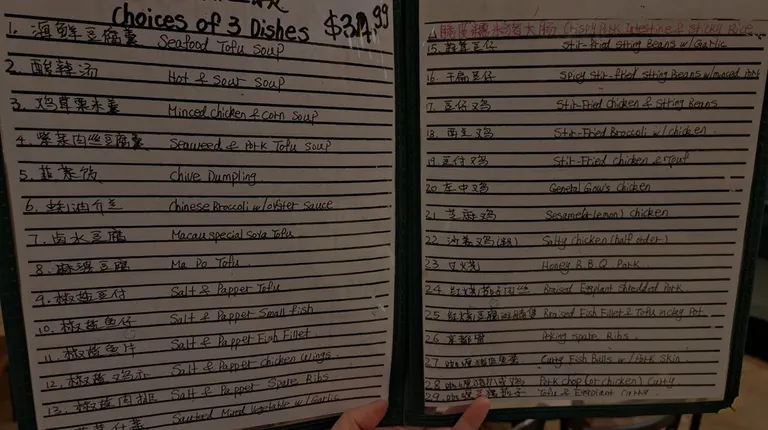 Choices of 3 Dishes $34.99
1. 海鲜豆腐羹 Seafood Tofu Soup
2. 酸辣汤 Hot & Sour Soup
3. 鸡茸粟米羹 Minced chicken & Corn Soup
4. 紫菜肉丝豆腐羹 Seaweed & Pork Tofu Soup
5. 韭菜饺 Chive Dumpling
6. 蚝油介兰 Chinese Broccoli w/oyster Sauce
7. 卤水豆腐 Macau special Soya Tofu
8. 麻婆豆腐 Ma Po Tofu
9. 椒盐豆付 Salt & Papper Tofu
10. 椒盐鱼仔 Salt & Papper Small fish
11. 椒盐鱼片 Salt & Papper Fish Fillet
12. 椒盐鸡亦 Salt & Papper chicken Wings
13. 椒盐肉排 Salt & Papper Spare Ribs
Sauteed Mixed Vegetable w/Garlic
Crispy Pork Intestine & Sticky Rice
15. 豆仔 Stir-Fried String Beans w/Garlic
16. 干扁豆仔 Spicy Stir-fried String Beans w/minced Pork
17. 豆仔鸡 Stir-Fried chicken & String Beans
18. 西兰鸡 Stir-Fried Broccoli w/chicken
19. 豆付鸡 Stir-Fried chicken & Touf
20 左中鸡 General Gow's chicken
21 芝麻鸡 Sesame(or Lemon) chicken
22 沙姜鸡(半只) Salty chicken (half order)
23 叉烧 Honey B.B.Q. Pork
24 红烧茄子肉丝 Braised Eggplant Shredded Pork
25 红烧豆腐斑腩煲 Braised Fish Fillet & Tofu in clay Pot
26 京都骨 Peking Spare Ribs
27 咖喱鱼旦 Curry Fish Balls w/Pork Skin
28 咖喱猎扒或鸡 Pork chop (or chicken) Curry
29 咖喱豆腐茄子 Tofu & Eggplant Curry